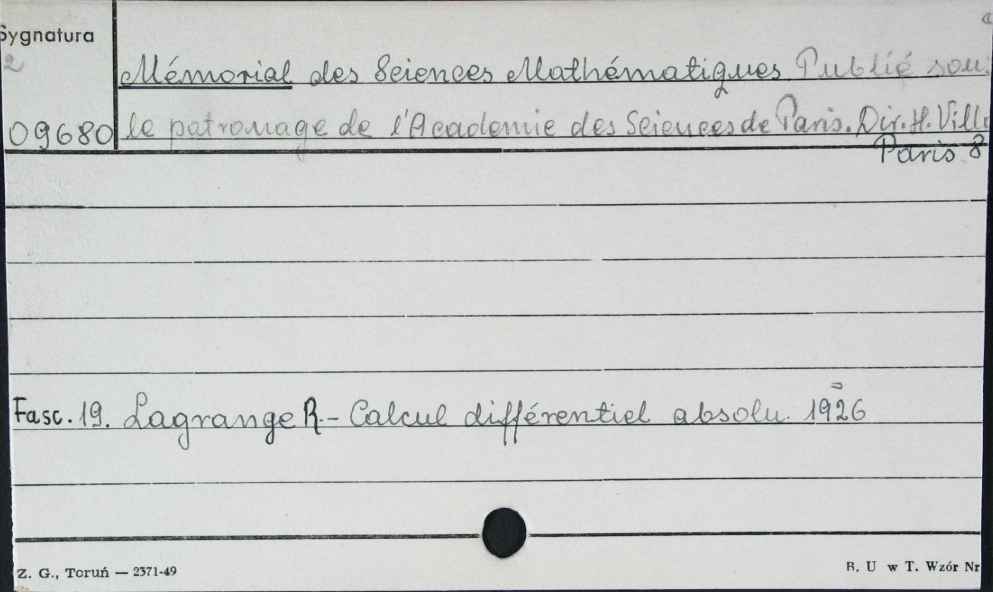 Sygnatura
2
Mémorial des Sciences Mathématiques Publié sou
09680 le patronage de l'Academie des Sciences de Paris. Dir. H. Vill
Paris 8
Fasc. 19. Lagrange R – Calcul différentiel absolu. 1926
Z. G., Toruń — 2371-49
B. U w T. Wzór Nr